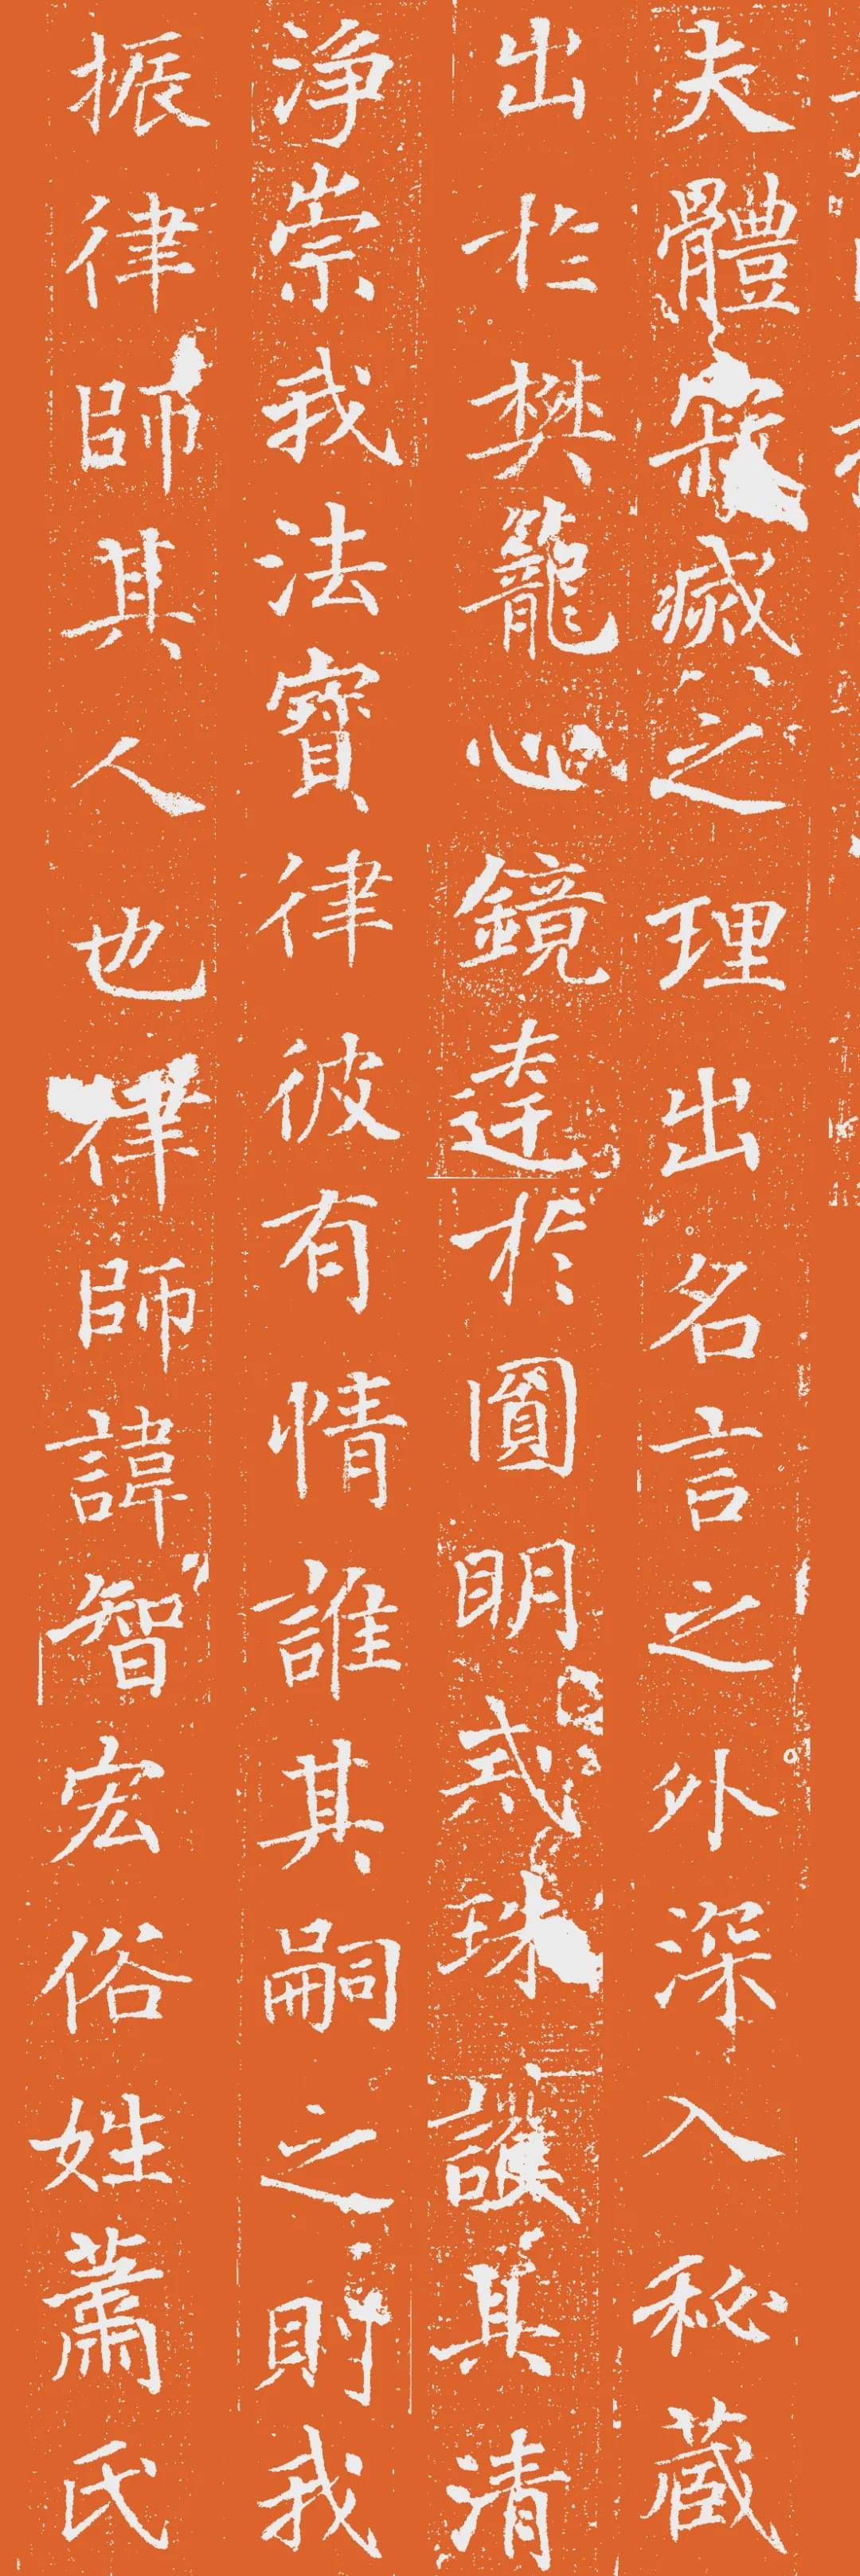 夫體寂滅之理出名言之外深入秘蔵
出於樊籠心鏡達於圓明式珠護其清
淨崇我法寶律彼有情誰其嗣之則我
振律師其人也律師諱智宏俗姓蕭氏